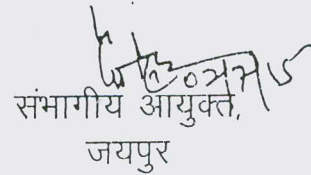 संभागीय आयुक्त,
जयपुर